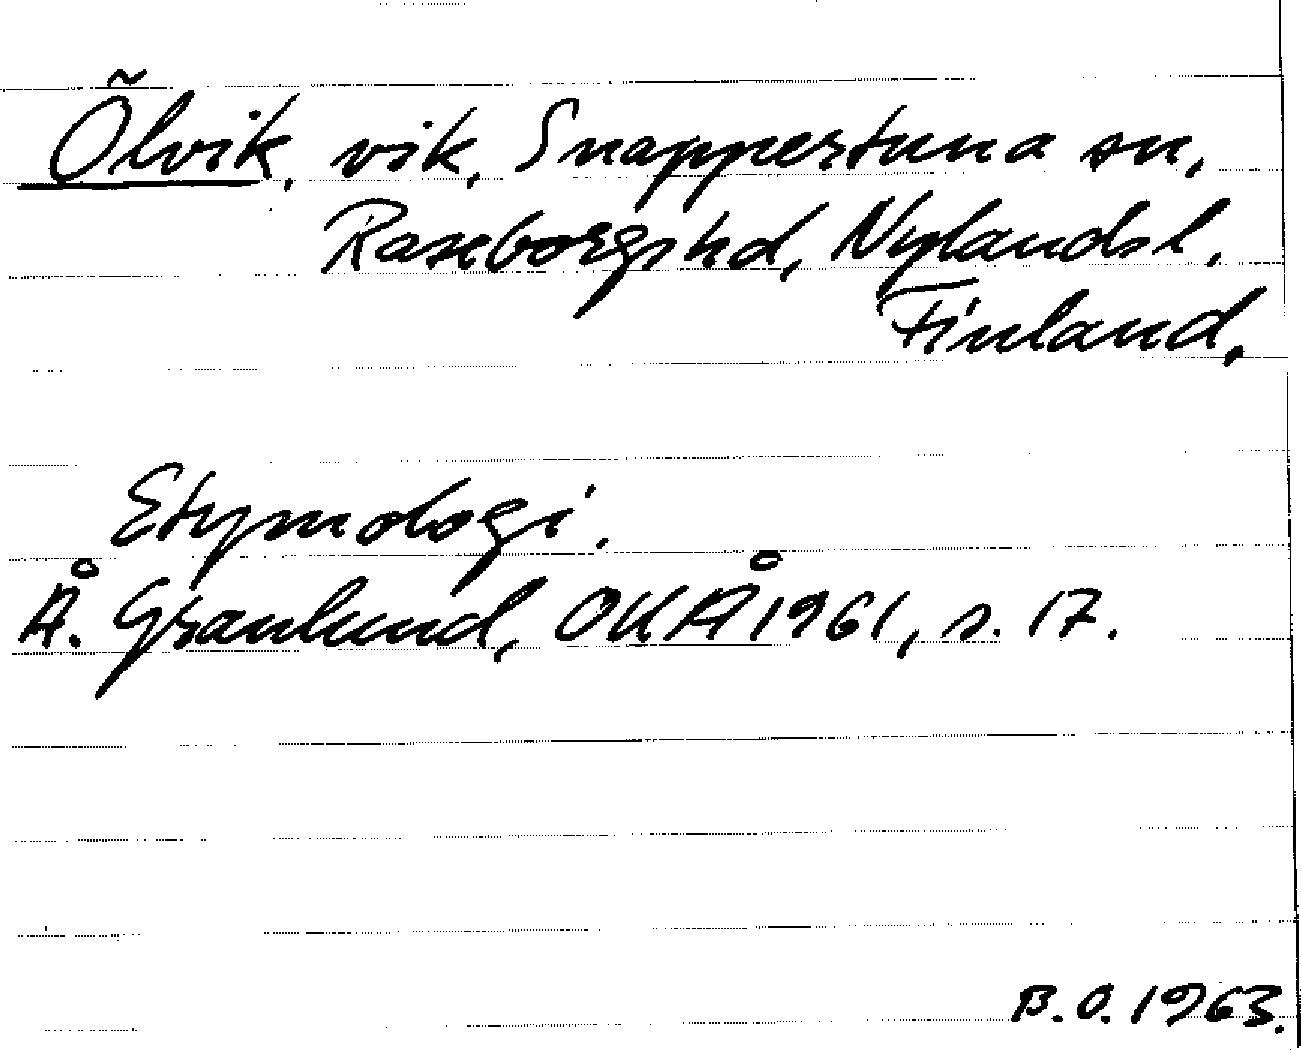 Õlvik, vik, Snappertuna sn,
Raseborgs hd, Nylands l.
Finland.
Etymologi.
Å. Granlund, OUÅ 1961, s. 17.
B.O. 1963.